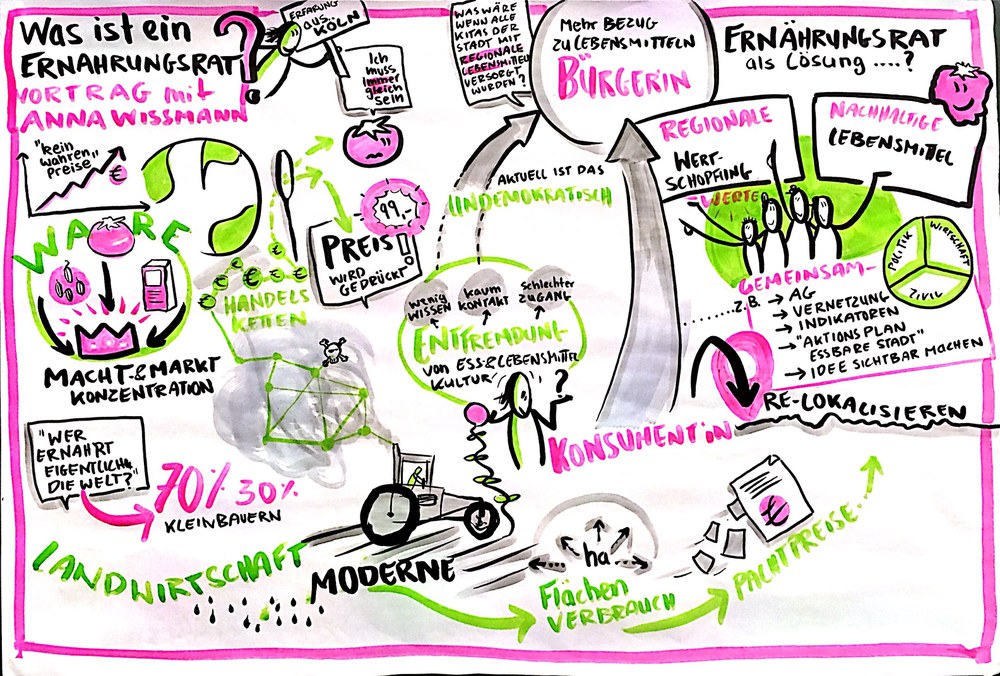 Was ist ein
ERNAHRUNGSRAT?
VORTRAG mit
ANNA WISSMANN
ERFAHRUNG
aus...
KÖLN
Ich
muss
immer
gleich
sein
WAS WÄRE
WENN ALLE
KITAS DER
STADT MIT
REGIONALE
LEBENSMITTELN
VERSORGT
WURDEN?
Mehr BEZUG
ZU LEBENSMITTELN
BÜRGERIN
ERNÄHRUNGSRAT
als Lösung ....?
REGIONALE
WERT-
SCHÖPFUNG
-WERTE-
NACHHALTIGE
LEBENSMITTEL
"kein
wahren
Preise"
€
WARE
MACHT-& MARKT
KONZENTRATION
€ € € € € €
HANDELS
KETTEN
99,-
PREIS!
WIRD
GEDRÜCKT
AKTUELL IST DAS
UNDEMOKRATISCH
wenig
WISSEN
kaum
KONTAKT
Schlechter
ZUGANG
ENTFREMDUNG
von ESS&LEBENSMITTEL
KULTUR
?
KONSUMENT*iN
POLITIK
WIRTSCHAFT
ZIVIL
GEMEINSAM-
...z.B. → AG
→ VERNETZUNG
→ INDIKATOREN
→ "AKTIONSPLAN
ESSBARE STADT"
→ IDEE SICHTBAR MACHEN
RE-LOKALISIEREN
"WER
ERNÄHRT
EIGENTLICH
DIE WELT?"
70% 30%
KLEINBAUERN
LANDWIRTSCHAFT
MODERNE
ha
Flächen
VERBRAUCH
€
PACHTPREISE...